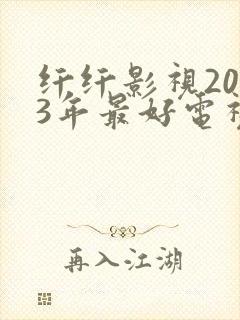 纤纤影視20
3年最好電視
再入江湖